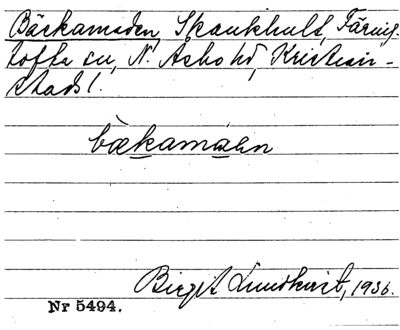 Bäckamaden, Skånkhult, Färing-
tofta sn, N. Åsbo hd, Kristian-
stads l.
bækamaən
Birgit Lundkvist, 1936.
Nr 5494.